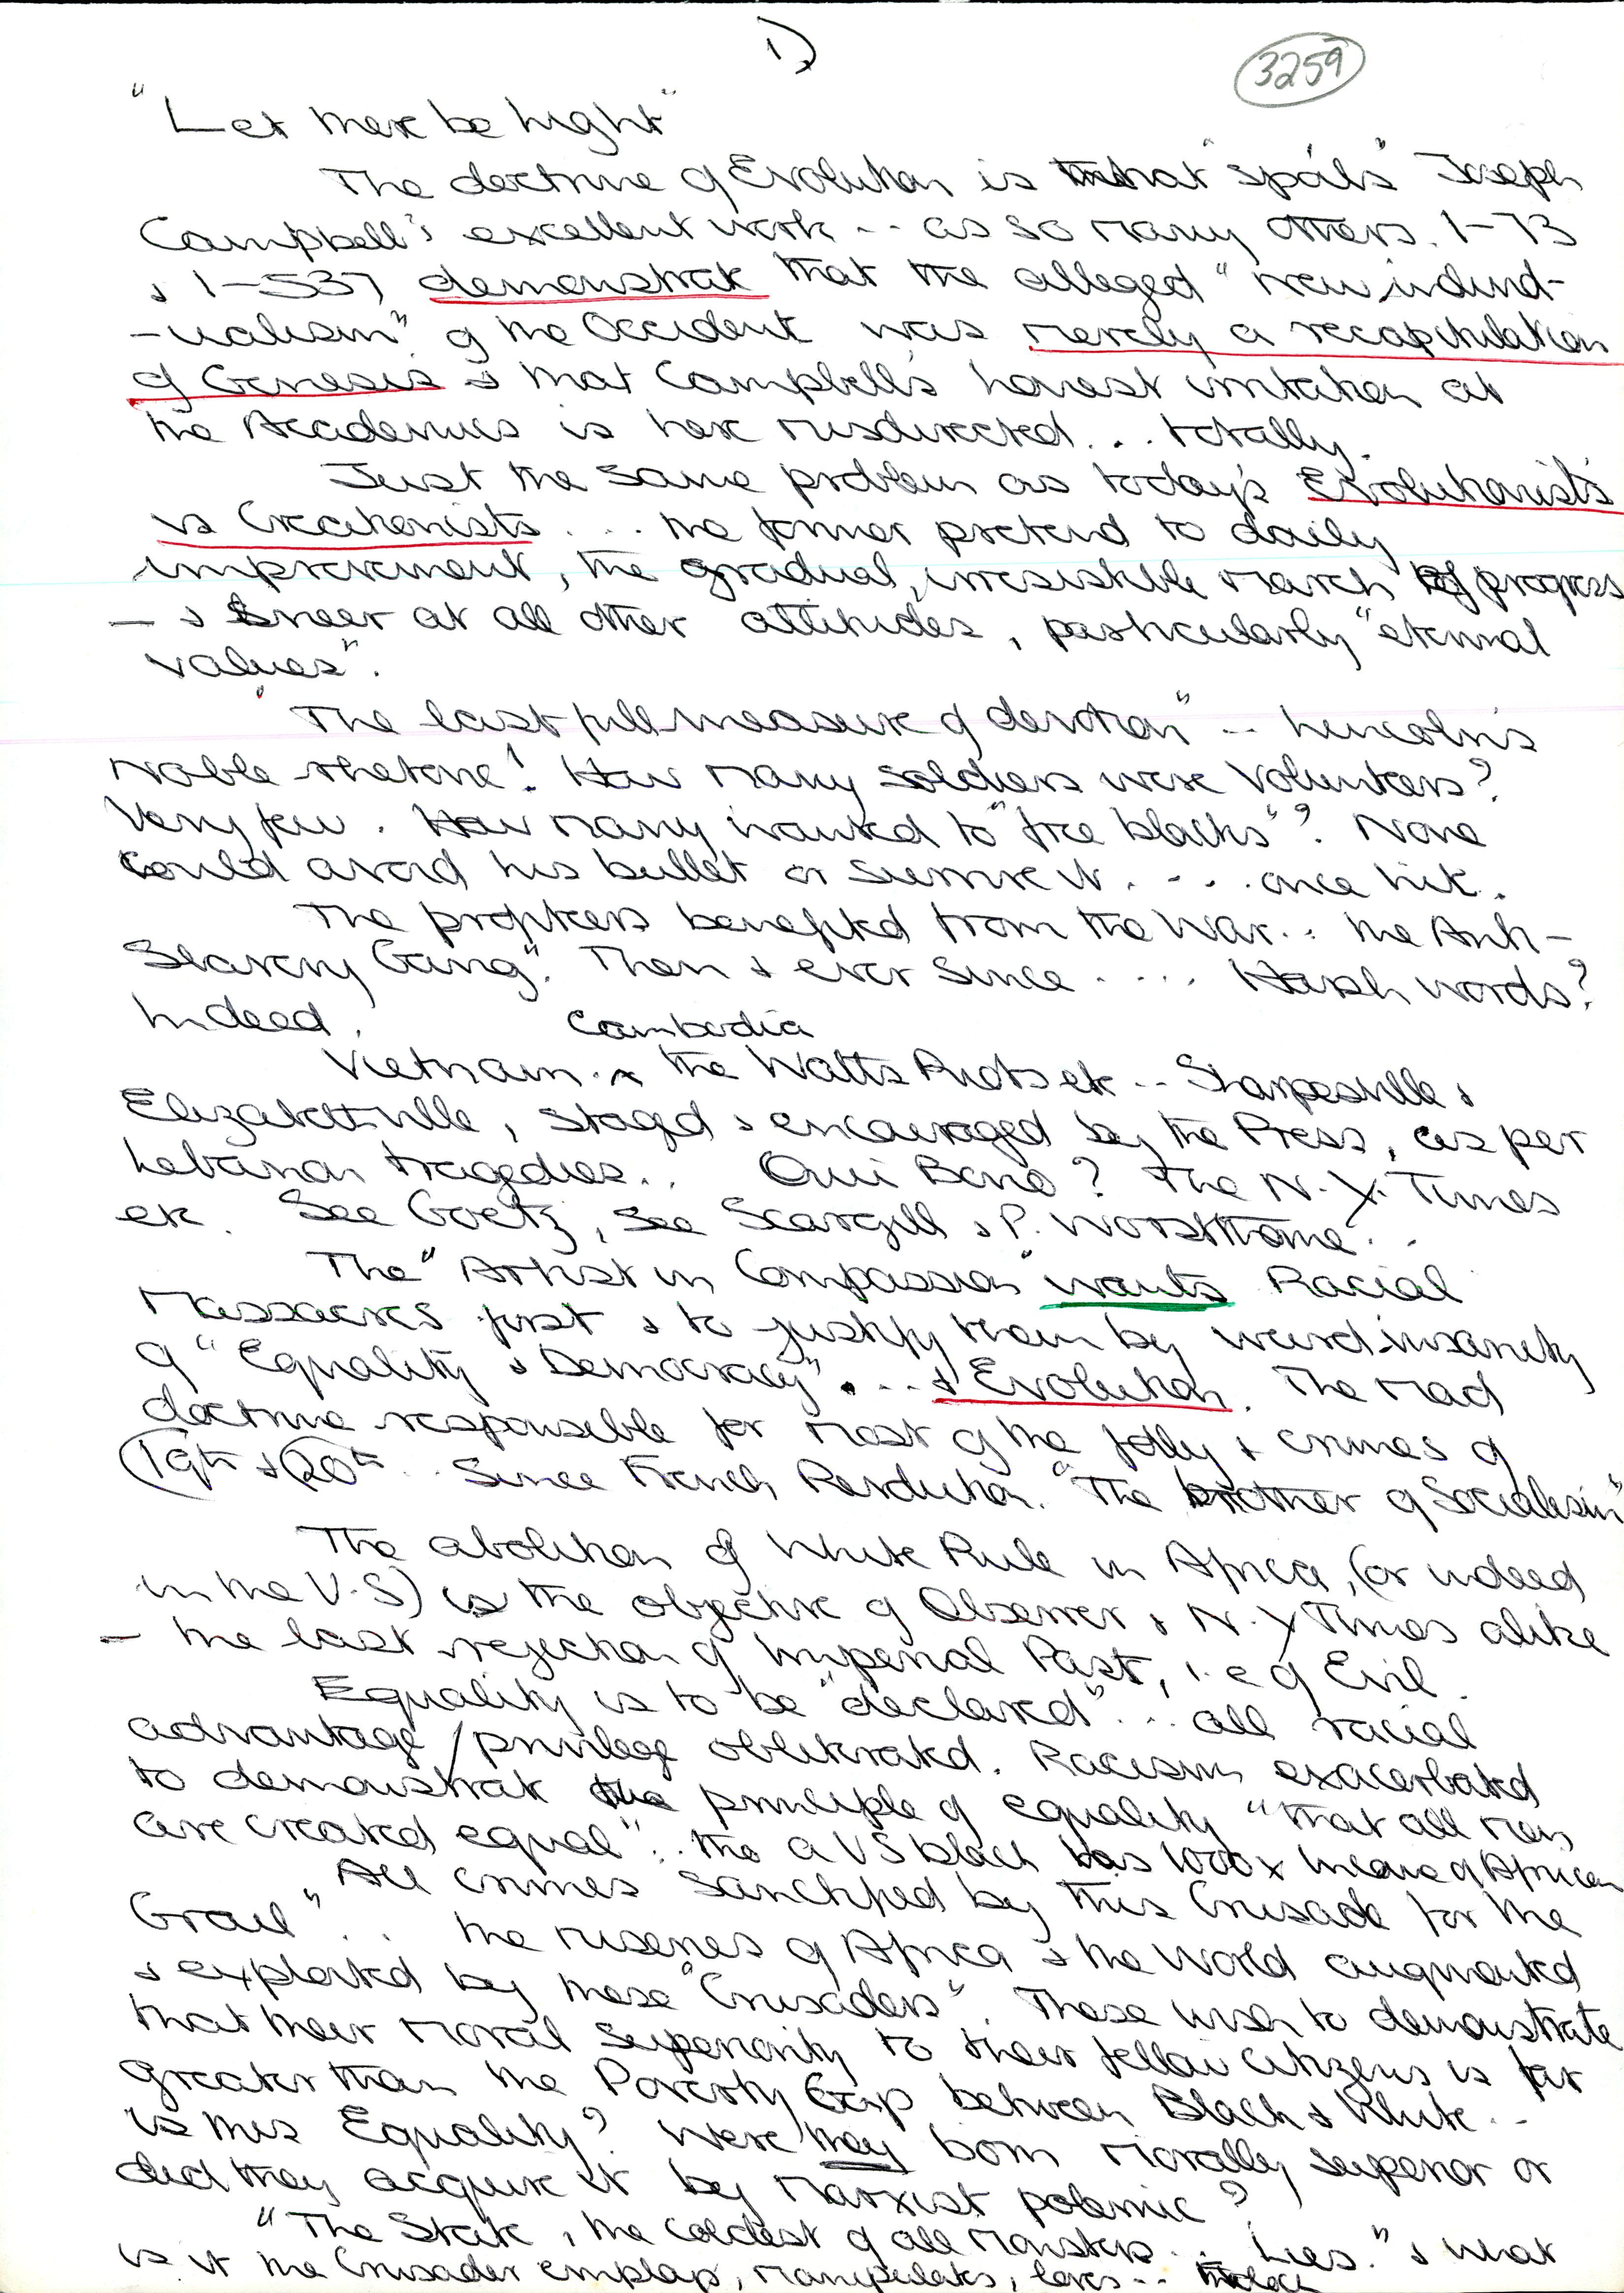 1)
3259
"Let there be Light"
The doctrine of Evolution is what "spoils" Joseph
Campbell's excellent work -- as so many others. 1-73
& 1-537 demonstrate that the alleged "new individ-
-ualism" of the Occident was merely a recapitulation
of Genesis & that Campbell's honest irritation at
the Academies is here misdirected... totally.
Just the same problem as today's Evolutionists
vs Creationists.... the former pretend to daily
improvement, the gradual, irresistible march of progress
- & sneer at all other attitudes, particularly "eternal
values".
"The last full measure of devotion" -- Lincoln's
Noble rhetoric! How many soldiers were Volunteers?
Very few. How many wanted to "free blacks"? None
could avoid his bullet or survive it.... once hit.
The profiteers benefited from the War... the Anti-
Slavery Gang". Then & ever since.... Harsh words?
Indeed.
Cambodia
Vietnam.. the Watts Riots etc -- Sharpesville &
Elizabethville, staged & encouraged by the Press, as per
Lebanon tragedies.. Qui Bono? The N.Y. Times
etc. See Goetz, see Scargill & P. Worsthorne...
The "Artist in Compassion" wants Racial
Massacres first & to justify them by weird insanity
of "Equality & Democracy"... & Evolution. The mad
doctrine responsible for most of the folly & crimes of
19th & 20th.. Since French Revolution. "The brother of Socialism"
The abolition of White Rule in Africa, (or indeed
in the U.S) is the objective of Observer & N.Y Times alike
- the last rejection of Imperial Past, i.e of Evil.
Equality is to be "declared"... all racial
advantage/privilege obliterated. Racism exacerbated
to demonstrate the principle of equality "that all men
are created equal"... tho a US black has 1000x income of African
All crimes sanctified by this Crusade for the
Grail"... the miseries of Africa & the World augmented
& exploited by these "Crusaders". These wish to demonstrate
that their moral superiority to their fellow citizens is far
greater than the Poverty Gap between Black & White --
is this Equality? Were they born morally superior or
did they acquire it by Marxist polemic?
"The State, the coldest of all monsters... Lies." & what
is it the Crusader employs, manipulates, loves...